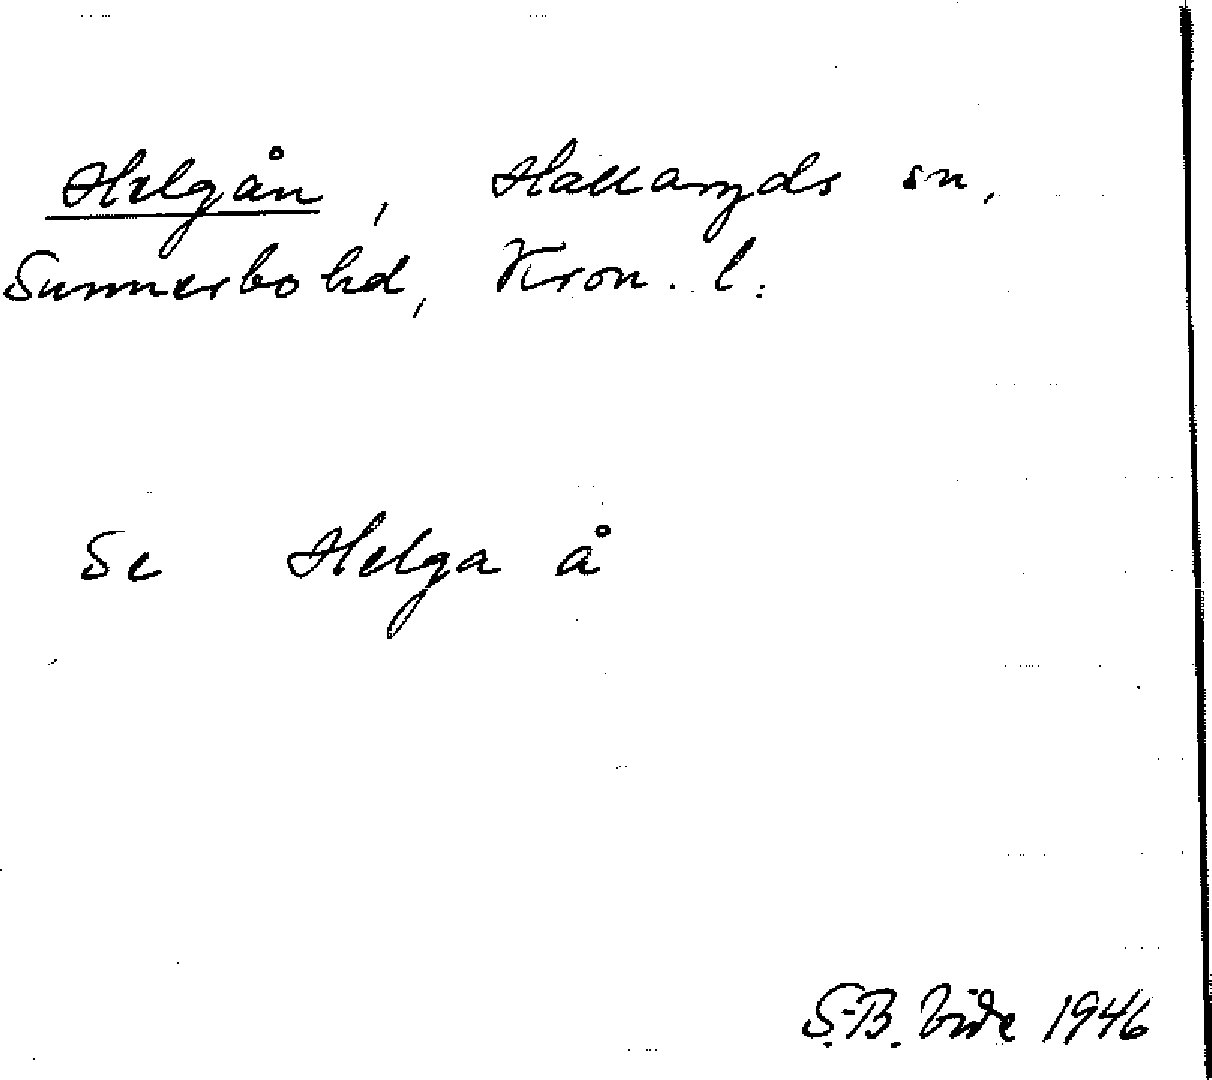 Helgån, Hallaryds sn,
Sunnerbo hd, Kron. l.
Se Helga å
S.-B. Vide 1946